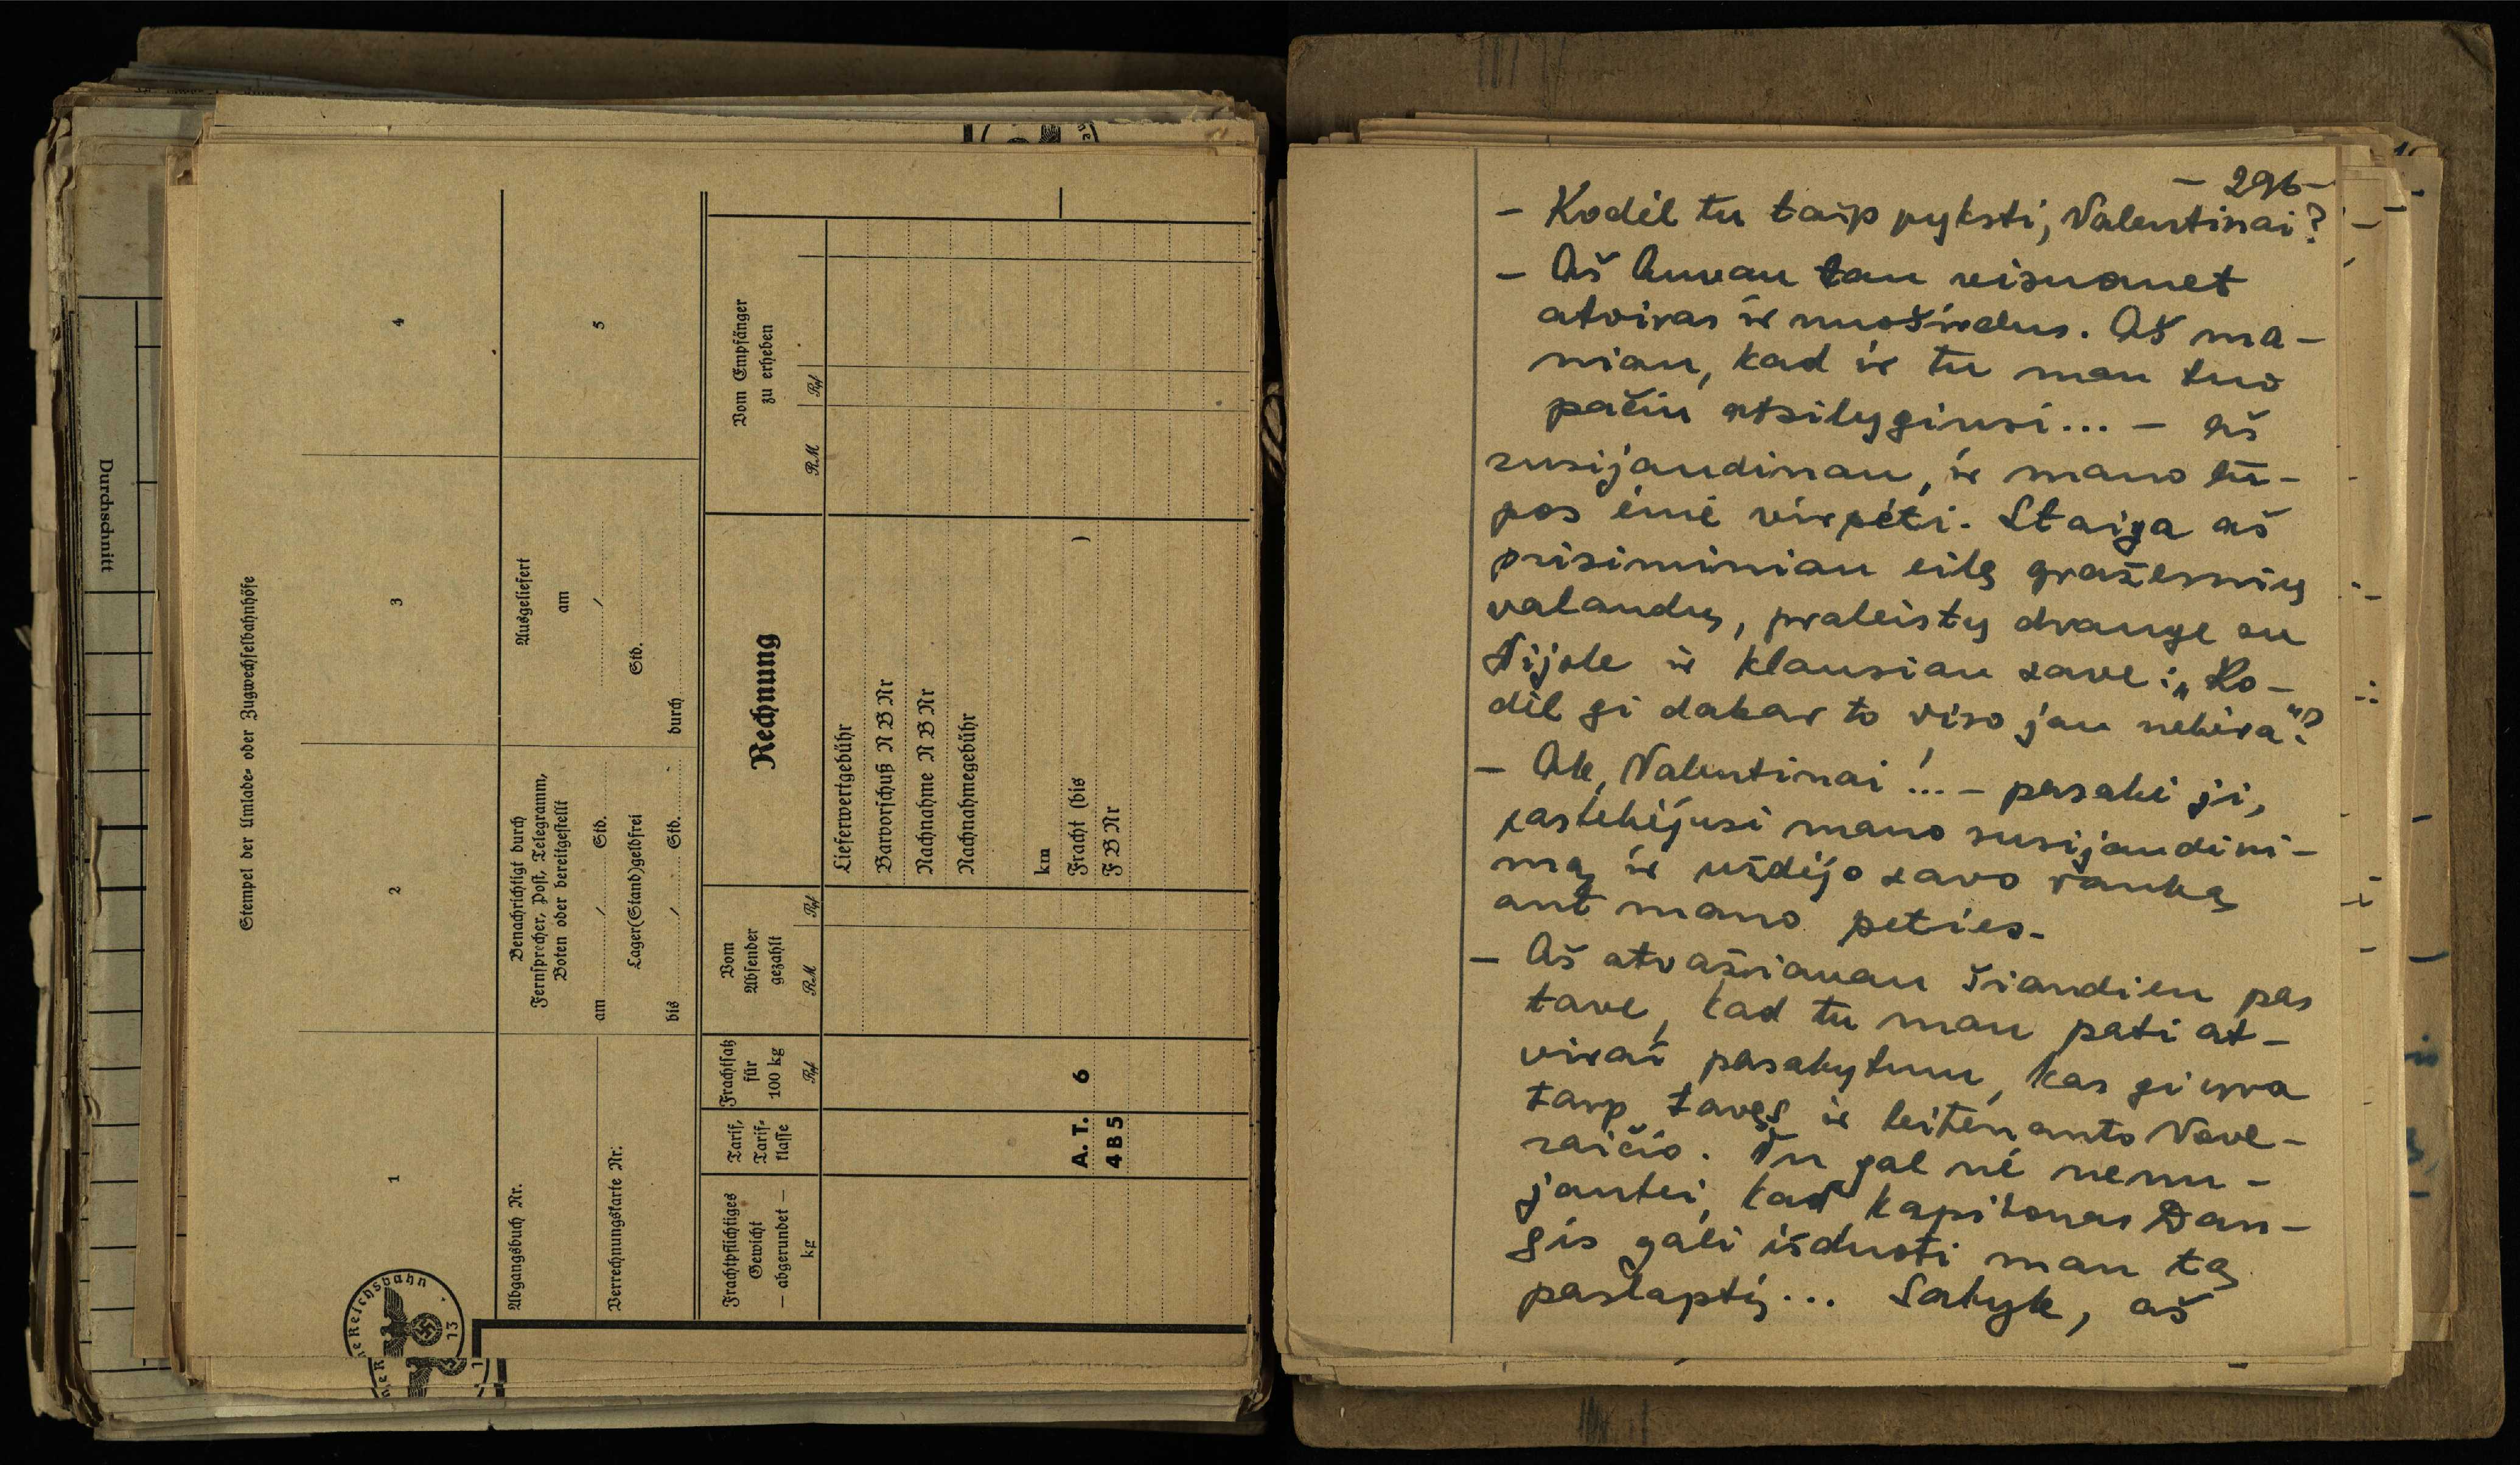 Durchschnitt
Stempel der Umlade- oder Zugwechselbahnhöfe
1
2
3
4
Abgangsbuch Nr.
Verrechnungskarte Nr.
Benachrichtigt durch
Fernsprecher, Post, Telegramm,
Boten oder bereitgestellt
am / Std.
Lager(Stand)geldfrei
bis / Std.
Ausgeliefert
am
/
Std.
durch
5
Frachtpflichtiges
Gewicht
— abgerundet —
kg
Tarif,
Tarif-
klasse
Frachtsatz
für
100 kg
Rpf
Vom
Absender
gezahlt
RM Rpf
Rechnung
Vom Empfänger
zu erheben
RM Rpf
Lieferwertgebühr
Barvorschuß N B Nr
Nachnahme N B Nr
Nachnahmegebühr
km
A. T. 6 Fracht (bis )
4 B 5 F B Nr
neReichsbahn
13
- 296 -
- Kodėl tu taip pyksti, Valentinai?
- Aš buvau tau visuomet
atviras ir nuoširdus. Aš ma-
niau, kad ir tu man tuo
pačiu atsilyginsi... - aš
susijaudinau, ir mano lū-
pos ėmė virpėti. Staiga aš
prisiminiau eilę gražesnių
valandų, praleistų drauge su
Nijole ir klausiau save: „Ko-
dėl gi dabar to viso jau nebėra"?
- Ak, Valentinai!... - pasakė ji,
pastebėjusi mano susijaudini-
mą ir uždėjo savo ranką
ant mano peties.
- Aš atvažiavau šiandien pas
tave, kad tu man pati at-
virai pasakytum, kas gi yra
tarp tavęs ir leitenanto Nave-
raičio. Tu gal nė nenu-
jautei, kad kapitonas Dan-
gis gali išduoti man tą
paslaptį... Sakyk, aš